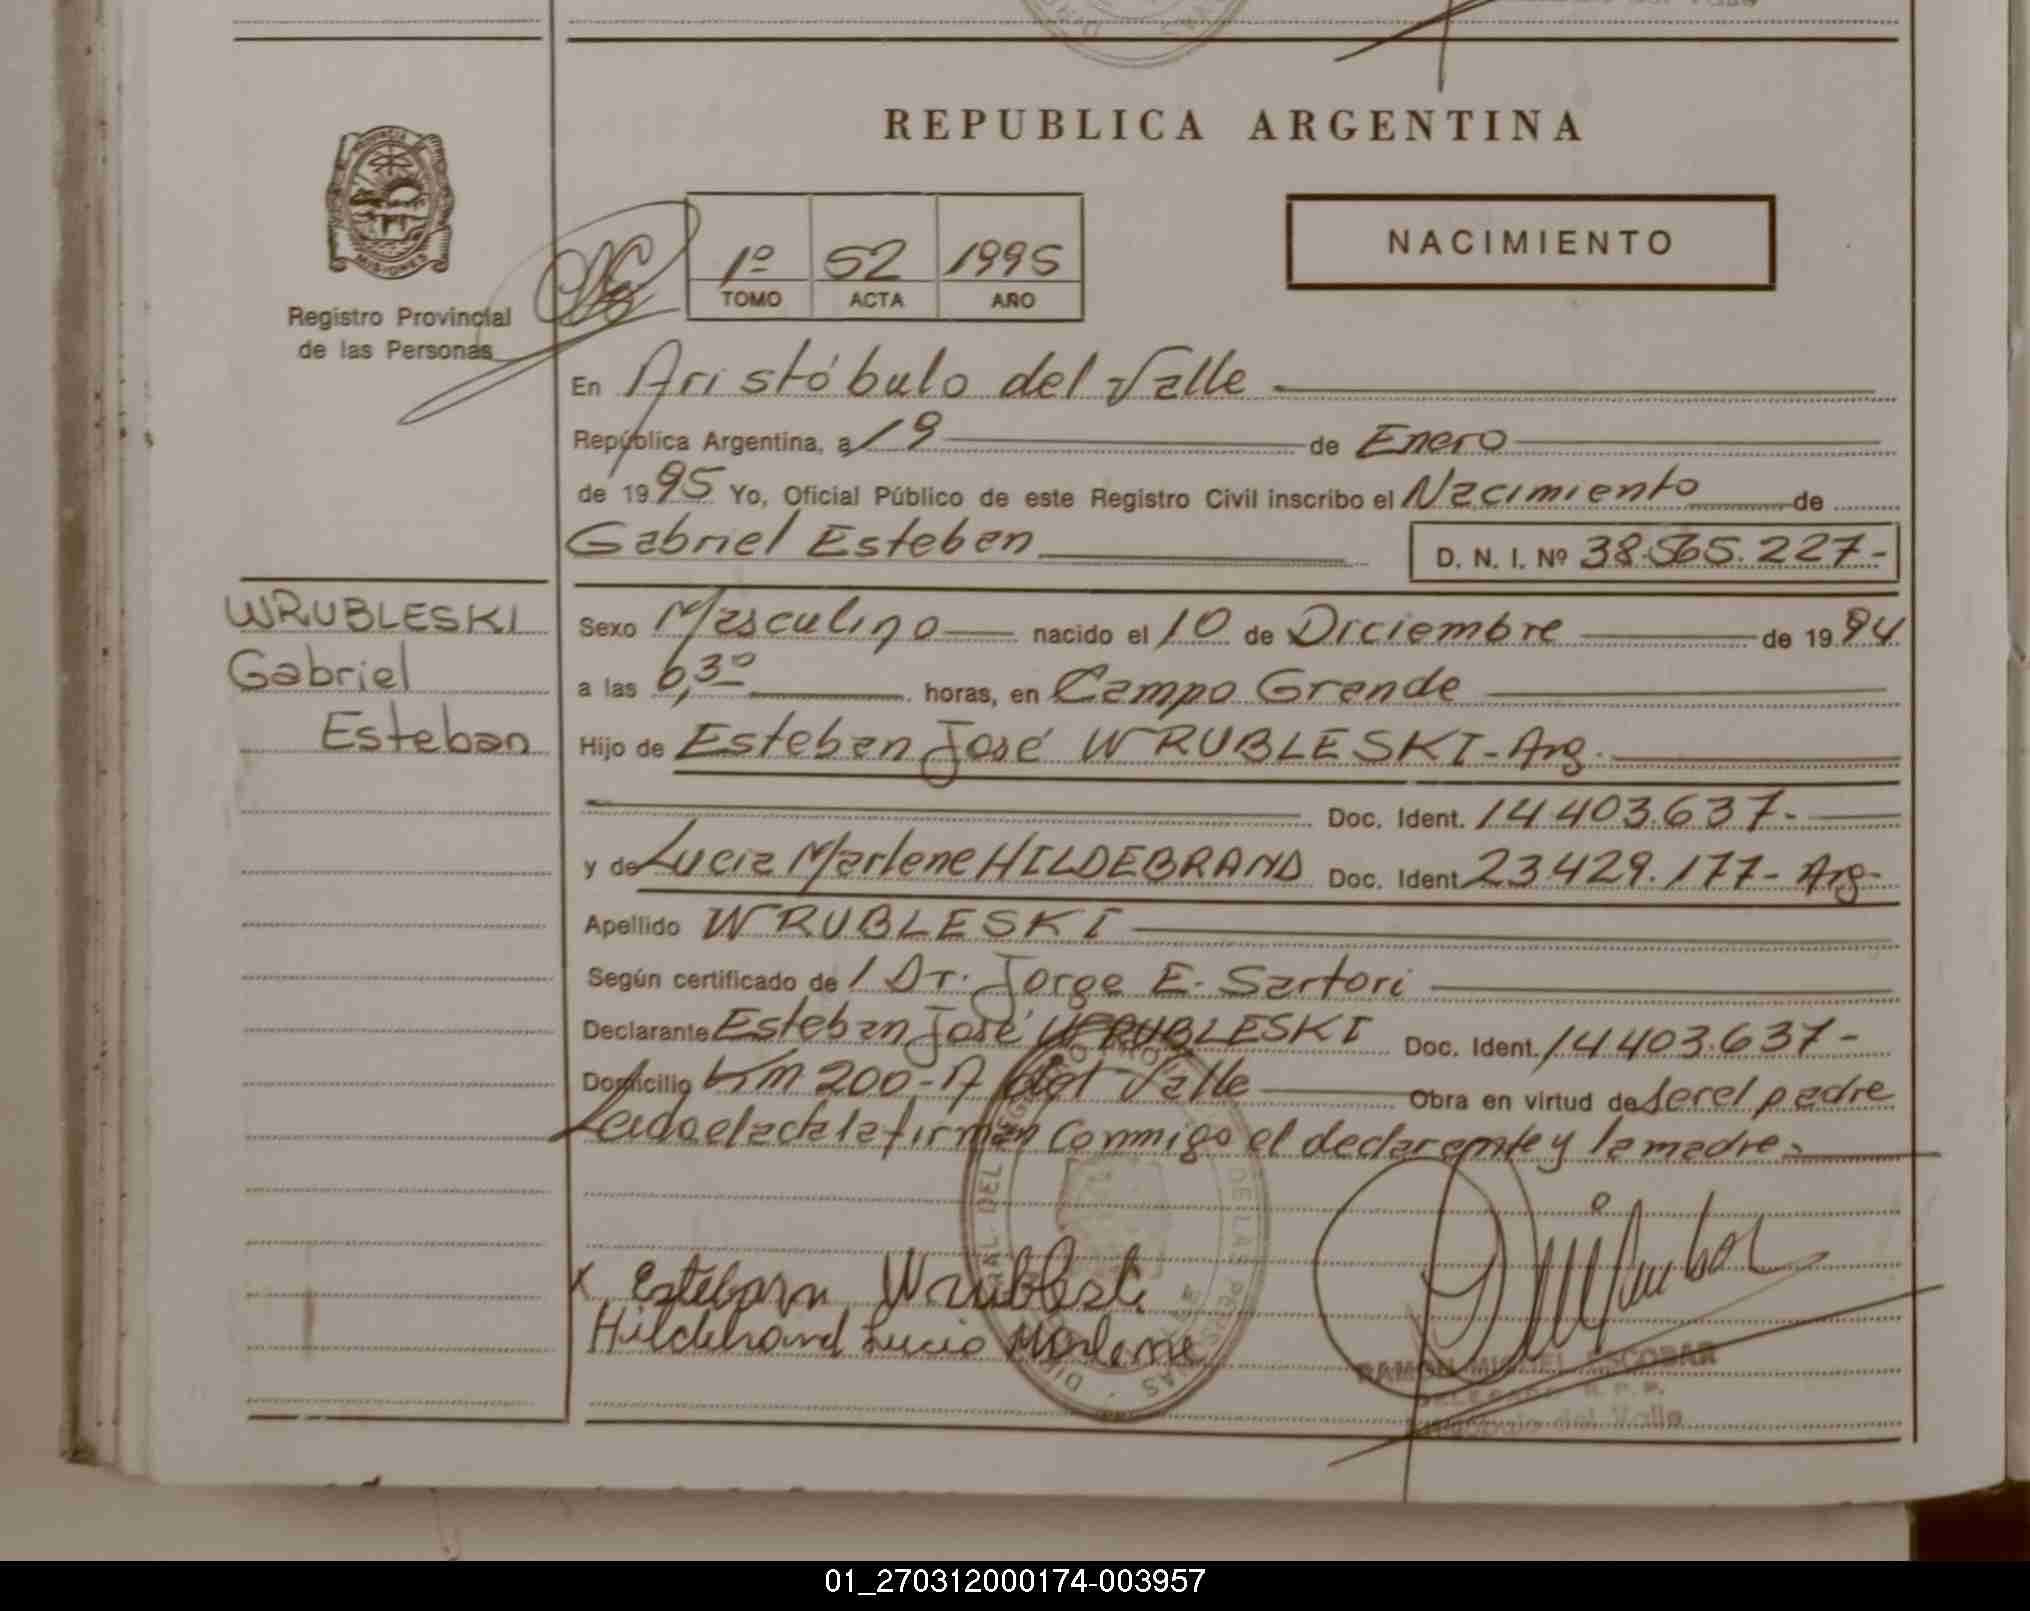 REPUBLICA ARGENTINA
MISIONES
Registro Provincial
de las Personas
NACIMIENTO
1º 52 1995
TOMO ACTA AÑO
En Aristóbulo del Valle
República Argentina, a 19 de Enero
de 1995 Yo, Oficial Público de este Registro Civil inscribo el Nacimiento de
Gabriel Esteban
D. N. I. Nº 38.565.227-
WRUBLESKI
Gabriel
Esteban
Sexo Masculino nacido el 10 de Diciembre de 1994
a las 6,30 horas, en Campo Grande
Hijo de Esteban José WRUBLESKI - Arg.
Doc. Ident. 14.403.637-
y de Lucia Marlene HILDEBRAND Doc. Ident. 23.429.177- Arg-
Apellido WRUBLESKI
Según certificado de / Dr. Jorge E. Sartori
Declarante Esteban José WRUBLESKI Doc. Ident. 14.403.637-
Domicilio Km 200 - A del Valle Obra en virtud de ser el padre
Leida el acta la firman conmigo el declarante y la madre.
x Esteban Wrubleski
Hildebrand Lucia Marlene
RAMON MIGUEL ESCOBAR
del Valle
01_270312000174-003957